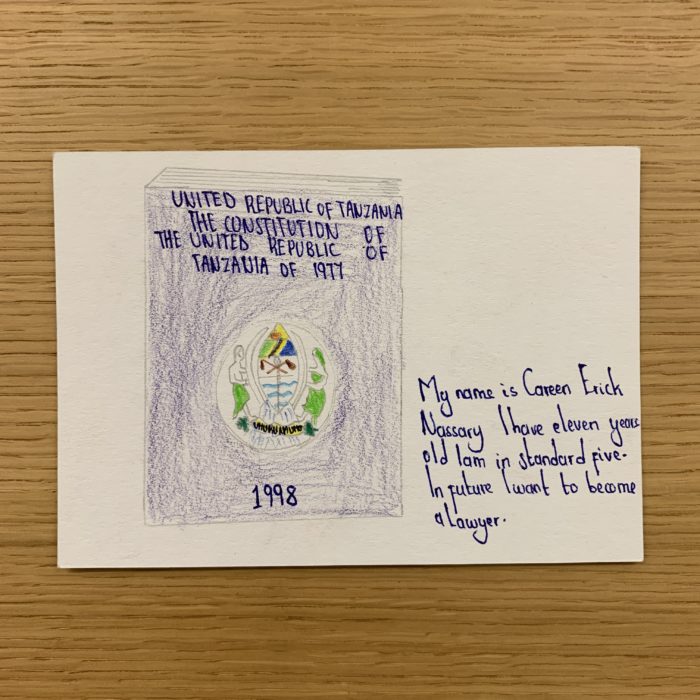 UNITED REPUBLIC OF TANZANIA
THE CONSTITUTION OF
THE UNITED REPUBLIC OF
TANZANIA OF 1977
1998
My name is Careen Erick
Nassary I have eleven years
old I am in standard five.
In future I want to become
a Lawyer.